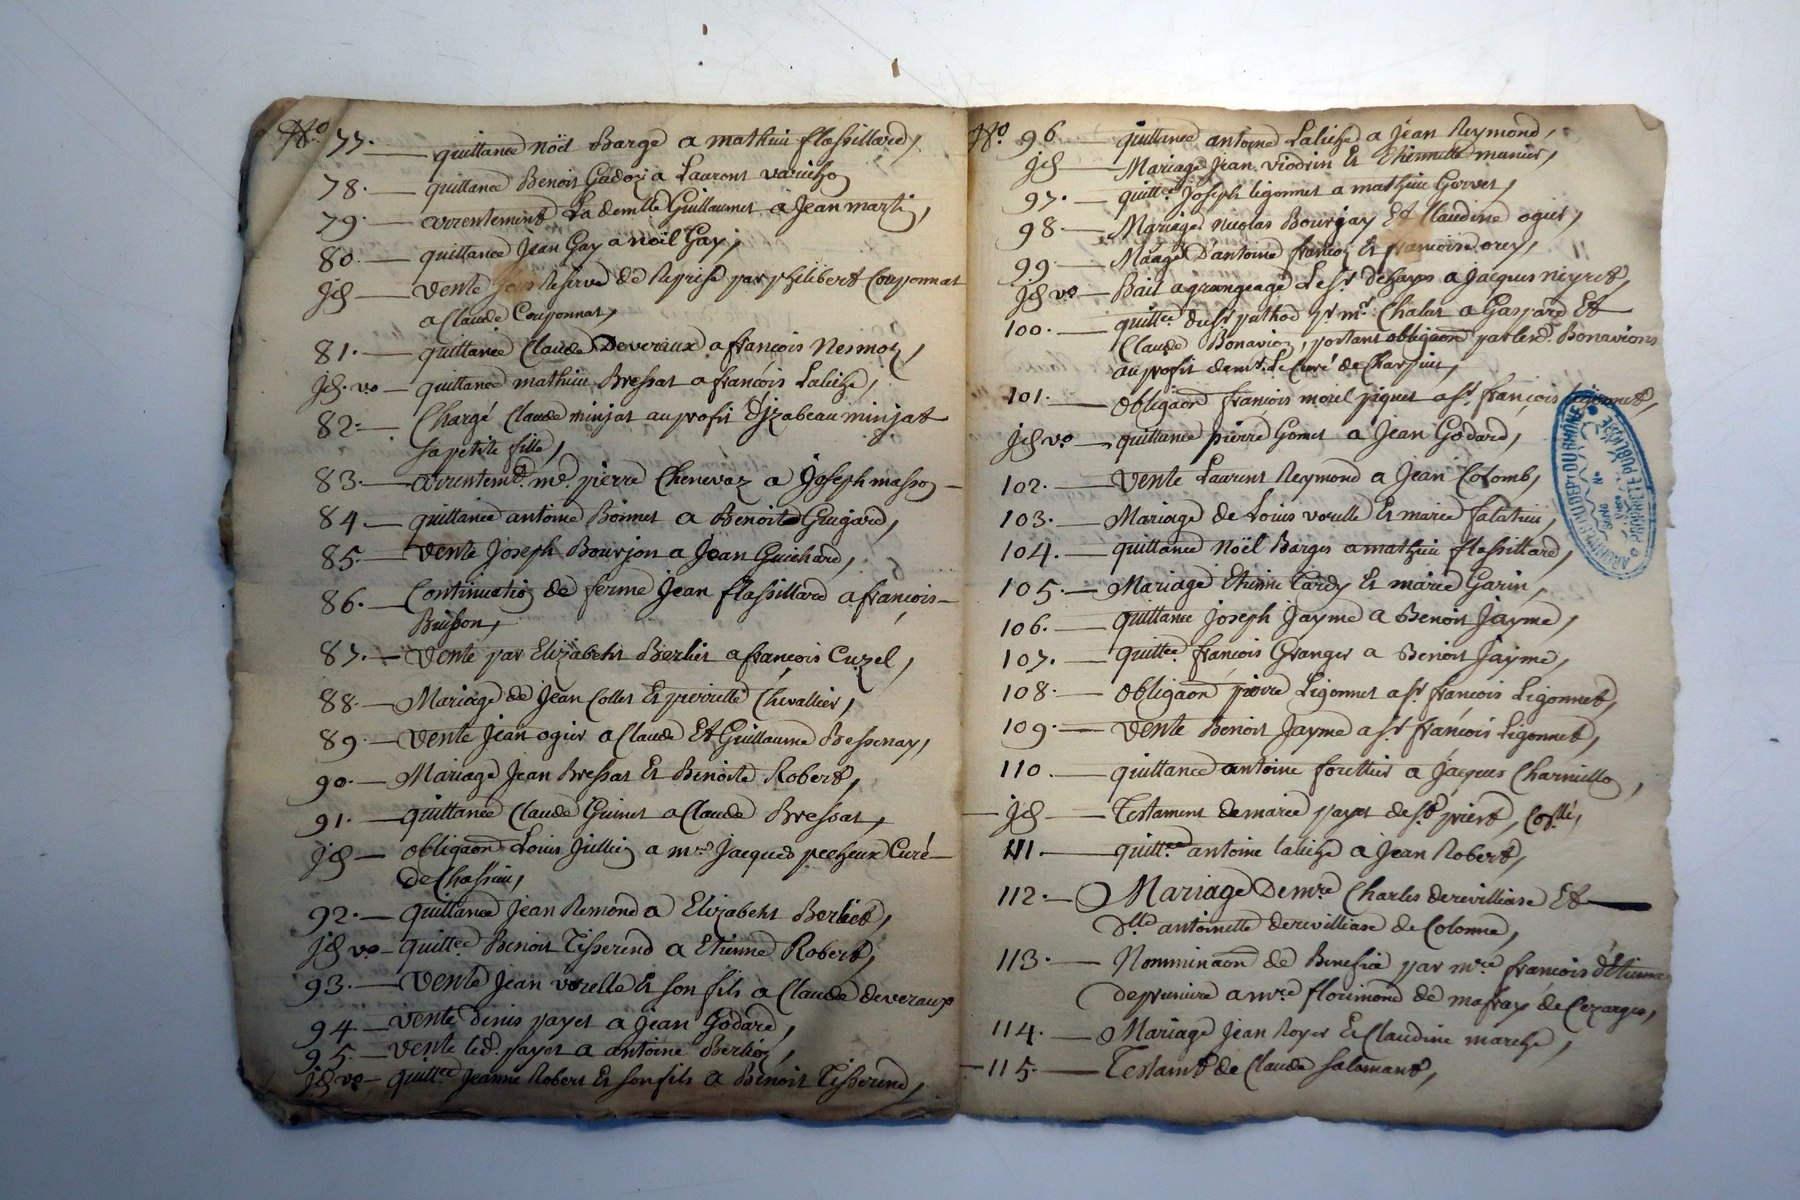 No. 77. quittance Noël Barge a mathieu flassillard,
78. quittance Benoit Gadoz a Laurent
79. arrentement La demlle Guillaumet a Jean martin,
80. quittance Jean Gay a noël Gay,
Jd vente sous Reserve de Reprise par philibert Couponnat
a Claude Couponnat,
81. quittance Claude Deveraux a françois Nesmoz,
Jd. vo quittance mathieu Bressat a françois Laliche,
82. Chargé Claude minjat au profit D'jzabeau minjat
sa petite fille,
83. arrentemt. me. pierre Chenevaz a Joseph masson
84 quittance antoine Bonnet a Benoit Guigard,
85. vente Joseph Bourjon a Jean Guichard,
86. Continuation de ferme Jean flassillard a françois
Buisson,
87. vente par Elizabeht Berliet a françois Cuzel,
88. Mariage de Jean Collet Et pierrette Chevallier,
89. vente Jean ogier a Claude Et Guillaume Bessenay,
90. Mariage Jean Bressat Et Benoite Robert,
91. quittance Claude Guinet a Claude Bressat,
Jd obligaon Louis Jullien a mre Jacques pecheux Curé
de Chassieu,
92. quittance Jean Remond a Elizabeht Berliet,
Jd vo quittce Benoit Tisserend a Etienne Robert,
93. vente Jean vorelle Et son fils a Claude deveraux
94. vente denis payet a Jean Godard,
95. vente led. payet a antoine Berlioz,
Jd vo quittce Jeanne Robert Et son fils a Benoit Tisserend,
No. 96 quittance antoine Laliche a Jean Reymond,
Jd Mariage Jean viodrin Et Etiennette munier,
97. quittce Joseph ligonnet a mathieu Gorret,
98. Mariage Nicolas Bourjay Et Claudine ogier,
99. Mariage D'antoine françon Et françoise orcy,
Jd vo Bail a grangeage Le sr. dehayes a Jacques neyret,
100. quittce du sr pathod pr mr. Chalat a Gaspard Et
Claude Bonavion, portant obligaon par lesd. Bonavions
au profit de mr. Le Curé de Charpieu,
101. obligaon françois morel piquet a sr. françois Ligonnet,
Jd vo quittance pierre Gomet a Jean Godard,
102. vente Laurent Reymond a Jean Colomb,
103. Mariage de Louis vorelle Et marie falatieu,
104. quittance Noël Barges a mathieu flassillard,
105. Mariage Etienne Tardy Et marie Garin,
106. quittance Joseph Jayme a Benoit Jayme,
107. quittce. françois Granger a Benoit Jayme,
108. obligaon pierre Ligonnet a sr françois Ligonnet,
109. vente Benoit Jayme a sr françois Ligonnet,
110 quittance antoine forettier a Jacques Charmillon,
Jd Testament de marie payet de st. priest,
111. quittce antoine laliche a Jean Robert,
112. Mariage De mre Charles derevilliase Et
dlle antoinette derevilliase de Colonne,
113. Nomminaon de Benefice par mre françois d'Etienne
depruniere a mre flourimond de mafray de Cezarges,
114. Mariage Jean Royer Et Claudine marche,
115. Testamt de Claude Salomant,